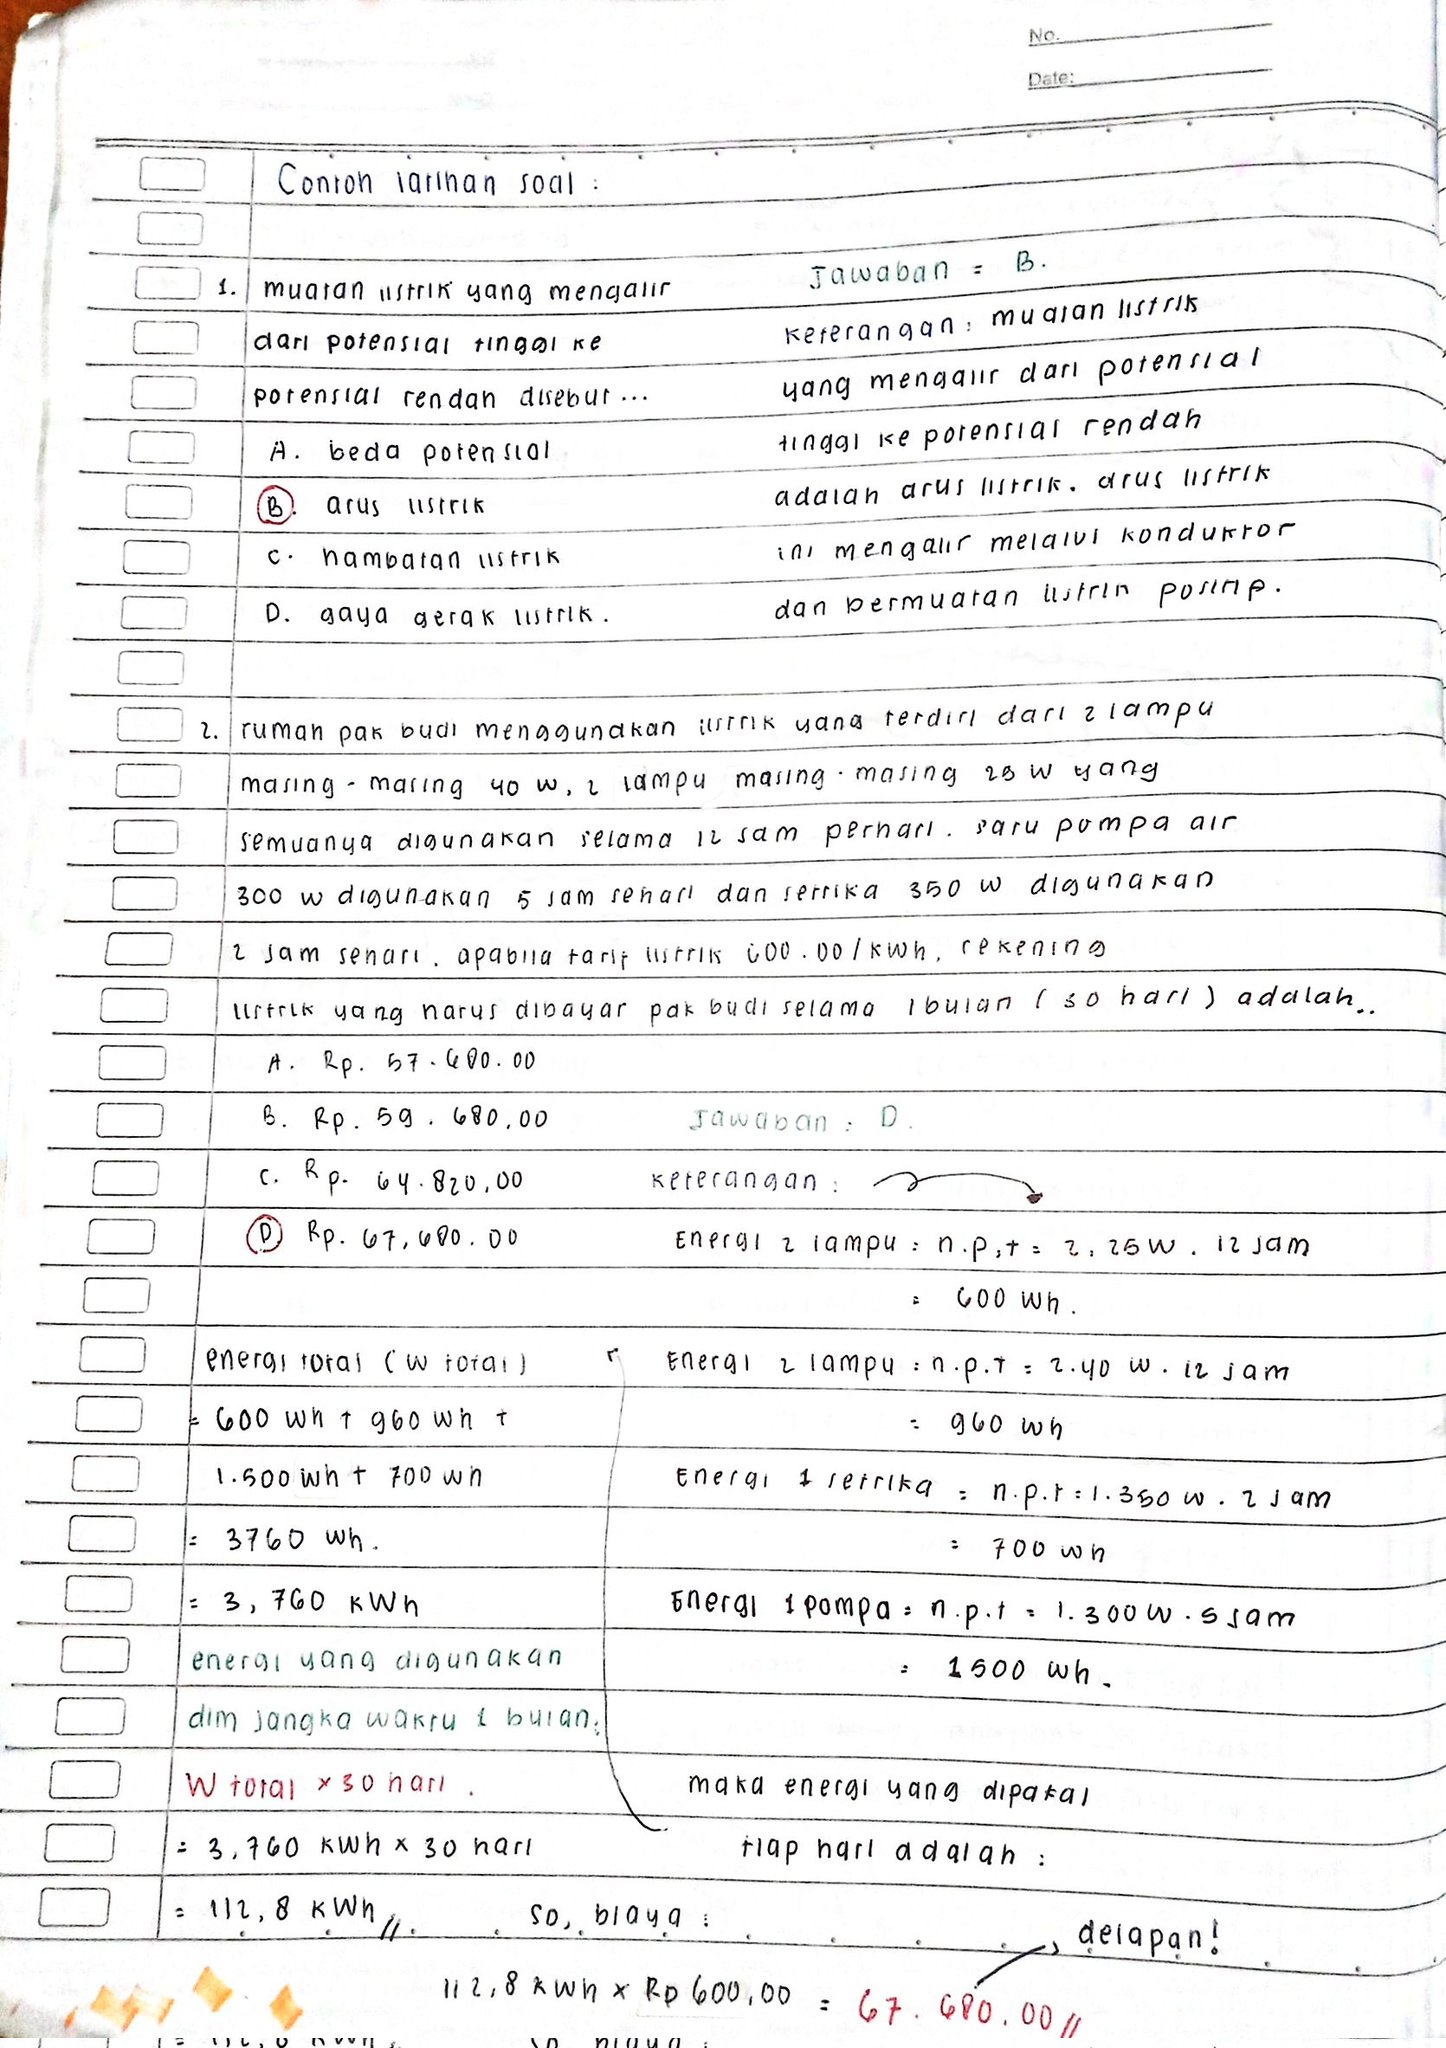 No.
Date:
Contoh latihan soal :
1. muatan listrik yang mengalir
dari potensial tinggi ke
potensial rendah disebut ...
A. beda potensial
B. arus listrik
C. hambatan listrik
D. gaya gerak listrik.
Jawaban = B.
keterangan : muatan listrik
yang mengalir dari potensial
tinggi ke potensial rendah
adalah arus listrik. arus listrik
ini mengalir melalui konduktor
dan bermuatan listrik positip.
2. rumah pak budi menggunakan listrik yang terdiri dari 2 lampu
masing - masing 40 w, 2 lampu masing - masing 25 w yang
semuanya digunakan selama 12 jam perhari. satu pompa air
300 w digunakan 5 jam sehari dan setrika 350 w digunakan
2 jam sehari. apabila tarif listrik 600.00/kwh, rekening
listrik yang harus dibayar pak budi selama 1 bulan (30 hari) adalah..
A. Rp. 57.680.00
B. Rp. 59.680,00
C. Rp. 64.820,00
D Rp. 67,680.00
Jawaban : D.
keterangan :
Energi 2 lampu : n.p,t = 2, 25 W . 12 jam
= 600 Wh.
Energi 2 lampu : n.p.t = 2.40 w . 12 jam
= 960 wh
Energi 1 setrika = n.p.t = 1.350 w . 2 jam
= 700 wh
Energi 1 pompa = n.p.t = 1.300 W . 5 jam
= 1500 wh.
maka energi yang dipakai
tiap hari adalah :
energi total (w total)
= 600 wh + 960 wh +
1.500 wh + 700 wh
= 3760 wh.
= 3,760 kWh
energi yang digunakan
dlm jangka waktu 1 bulan:
W total × 30 hari.
= 3,760 kWh × 30 hari
= 112,8 kWh //
so, biaya :
delapan!
112,8 kWh × Rp 600,00 = 67.680.00 //
= 112,8 kWh
so, biaya :